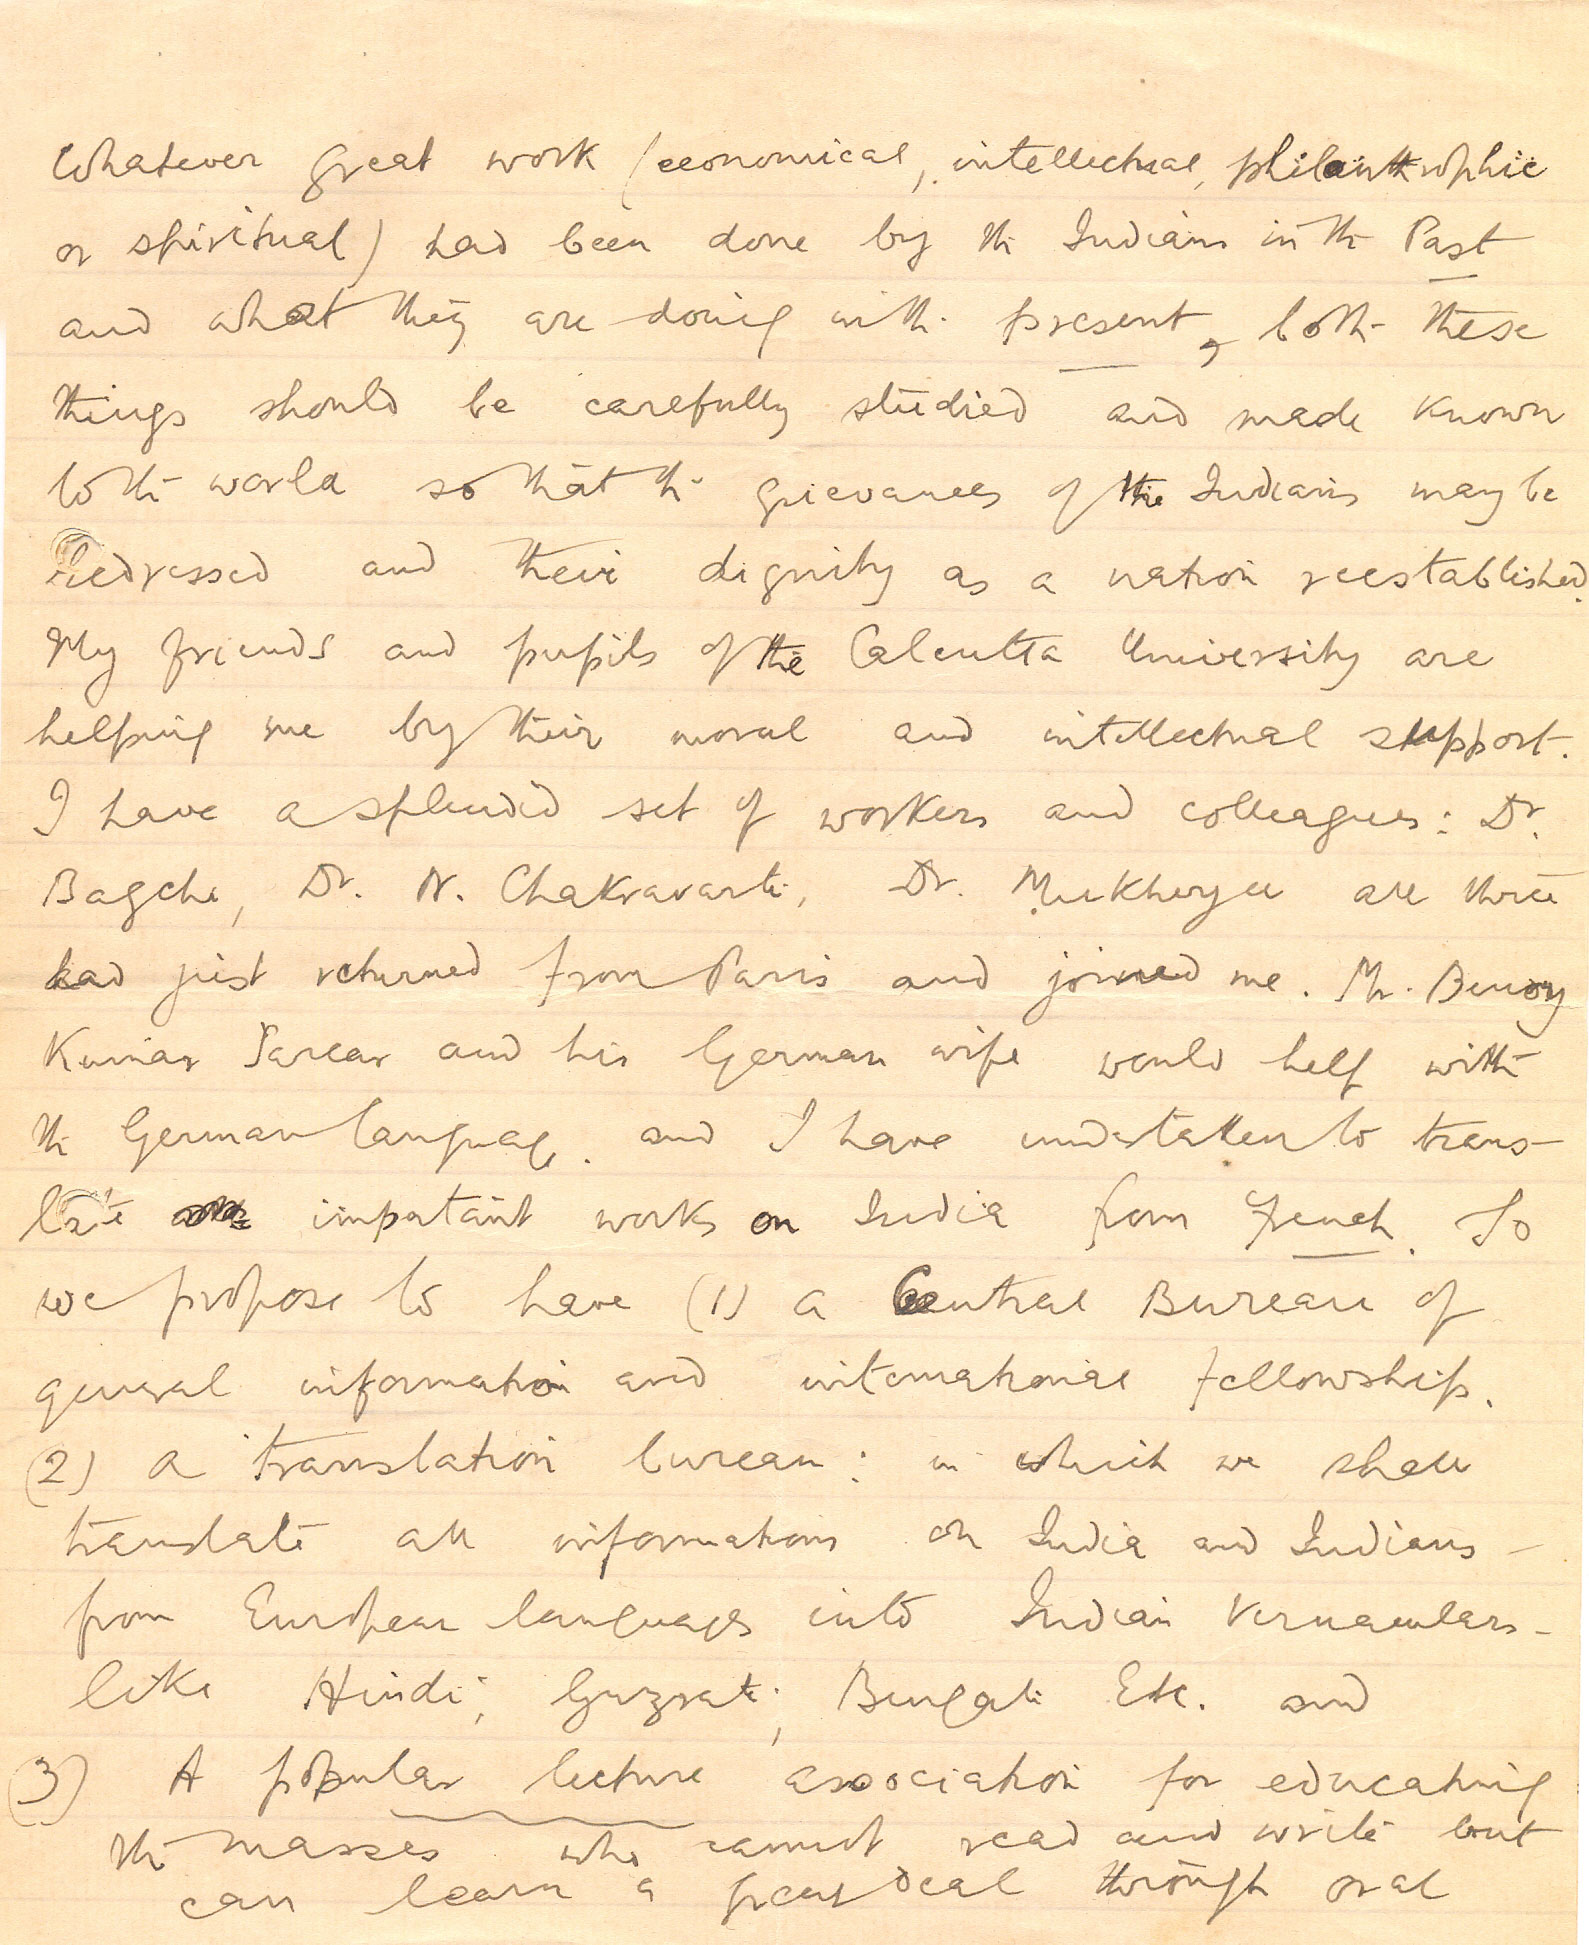 Whatever great work (economical, intellectual, philanthrophic
or spiritual) had been done by the Indians in the Past
and what they are doing in the present, both these
things should be carefully studied and made known
to the world so that the grievances of the Indians may be
redressed and their dignity as a nation reestablished.
My friends and pupils of the Calcutta University are
helping me by their moral and intellectual support.
I have a splendid set of workers and colleagues: Dr.
Bagchi, Dr. N. Chakravarti, Dr. Mukherjee all three
had just returned from Paris and joined me. Mr. Benoy
Kumar Sarcar and his German wife would help with
the German language. and I have undertaken to trans-
late important works on India from French. So
we propose to have (1) a Central Bureau of
general information and international Fellowship.
(2) a translation bureau: in which we shall
translate all informations on India and Indians -
from European languages into Indian Vernaculars -
like Hindi, Guzrati, Bengali Etc. and
(3) A popular lecture association for educating
the masses who cannot read and write but
can learn a great deal through oral